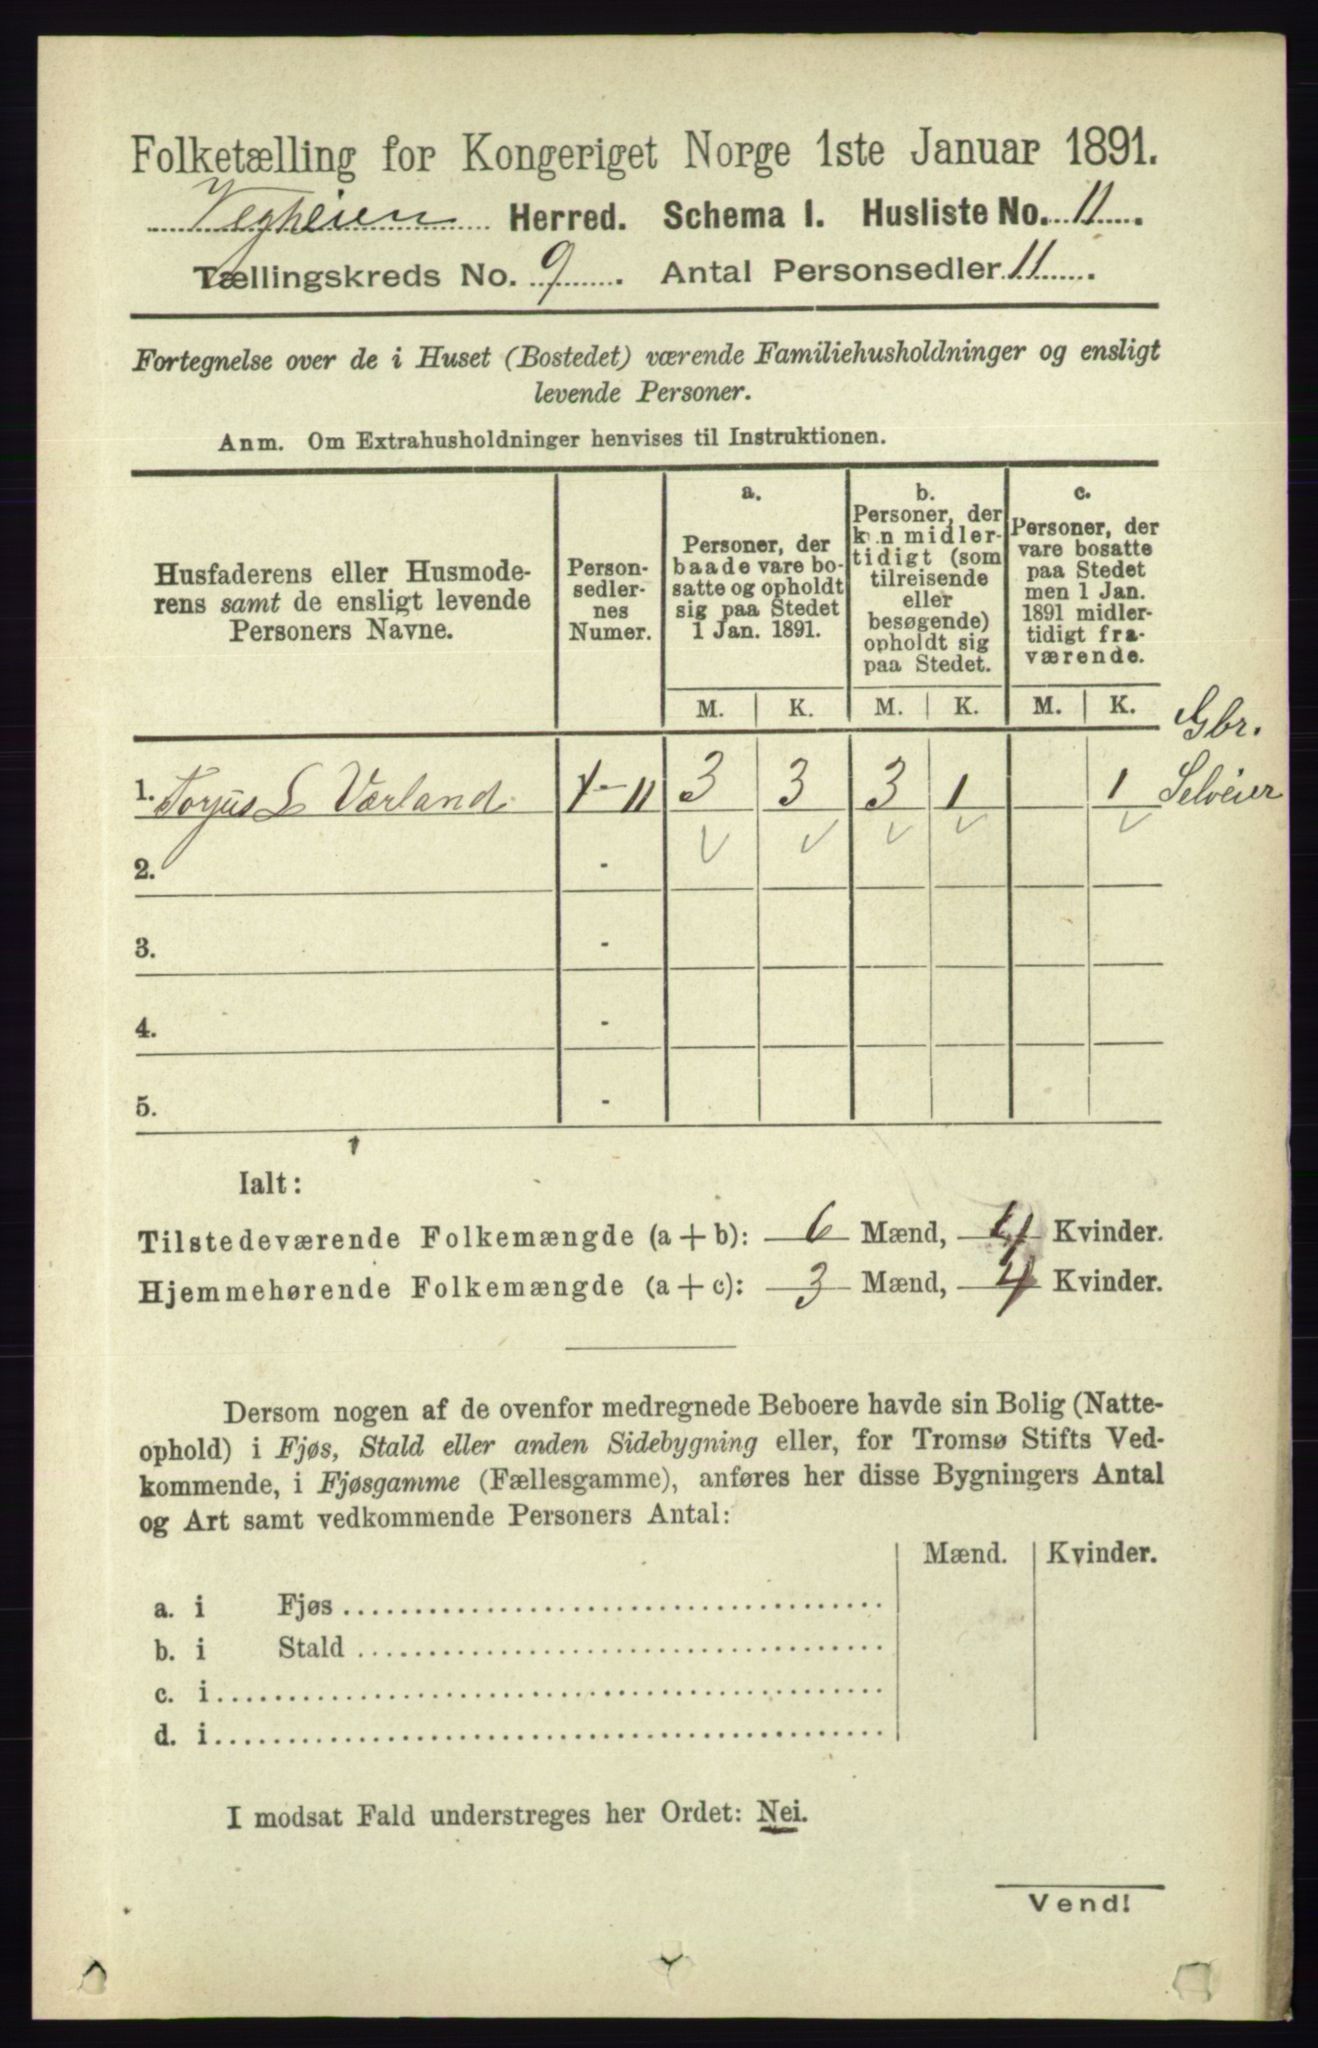 Folketælling for Kongeriget Norge 1ste Januar 1891.
Vegheien Herred. Schema I. Husliste No. 11.
Tællingskreds No. 9. Antal Personsedler 11.
Fortegnelse over de i Huset (Bostedet) værende Familiehusholdninger og ensligt
levende Personer.
Anm. Om Extrahusholdninger henvises til Instruktionen.
Husfaderens eller Husmode-
rens samt de ensligt levende
Personers Navne.
Person-
sedler-
nes
Numer.
a.
Personer, der
baade vare bo-
satte og opholdt
sig paa Stedet
1 Jan. 1891.
b.
Personer, der
kun midler-
tidigt (som
tilreisende
eller
besøgende)
opholdt sig
paa Stedet.
c.
Personer, der
vare bosatte
paa Stedet
men 1 Jan.
1891 midler-
tidigt fra-
værende.
M. K. M. K. M. K.
Gbr.
1. Torjus L Værland 1-11 3 3 3 1 1 Selveier
2. -
3. -
4. -
5. -
Ialt:
Tilstedeværende Folkemængde (a + b): 6 Mænd, 4 Kvinder.
Hjemmehørende Folkemængde (a + c): 3 Mænd, 4 Kvinder.
Dersom nogen af de ovenfor medregnede Beboere havde sin Bolig (Natte-
ophold) i Fjøs, Stald eller anden Sidebygning eller, for Tromsø Stifts Ved-
kommende, i Fjøsgamme (Fællesgamme), anføres her disse Bygningers Antal
og Art samt vedkommende Personers Antal:
Mænd. Kvinder.
a. i Fjøs
b. i Stald
c. i
d. i
I modsat Fald understreges her Ordet: Nei.
Vend!